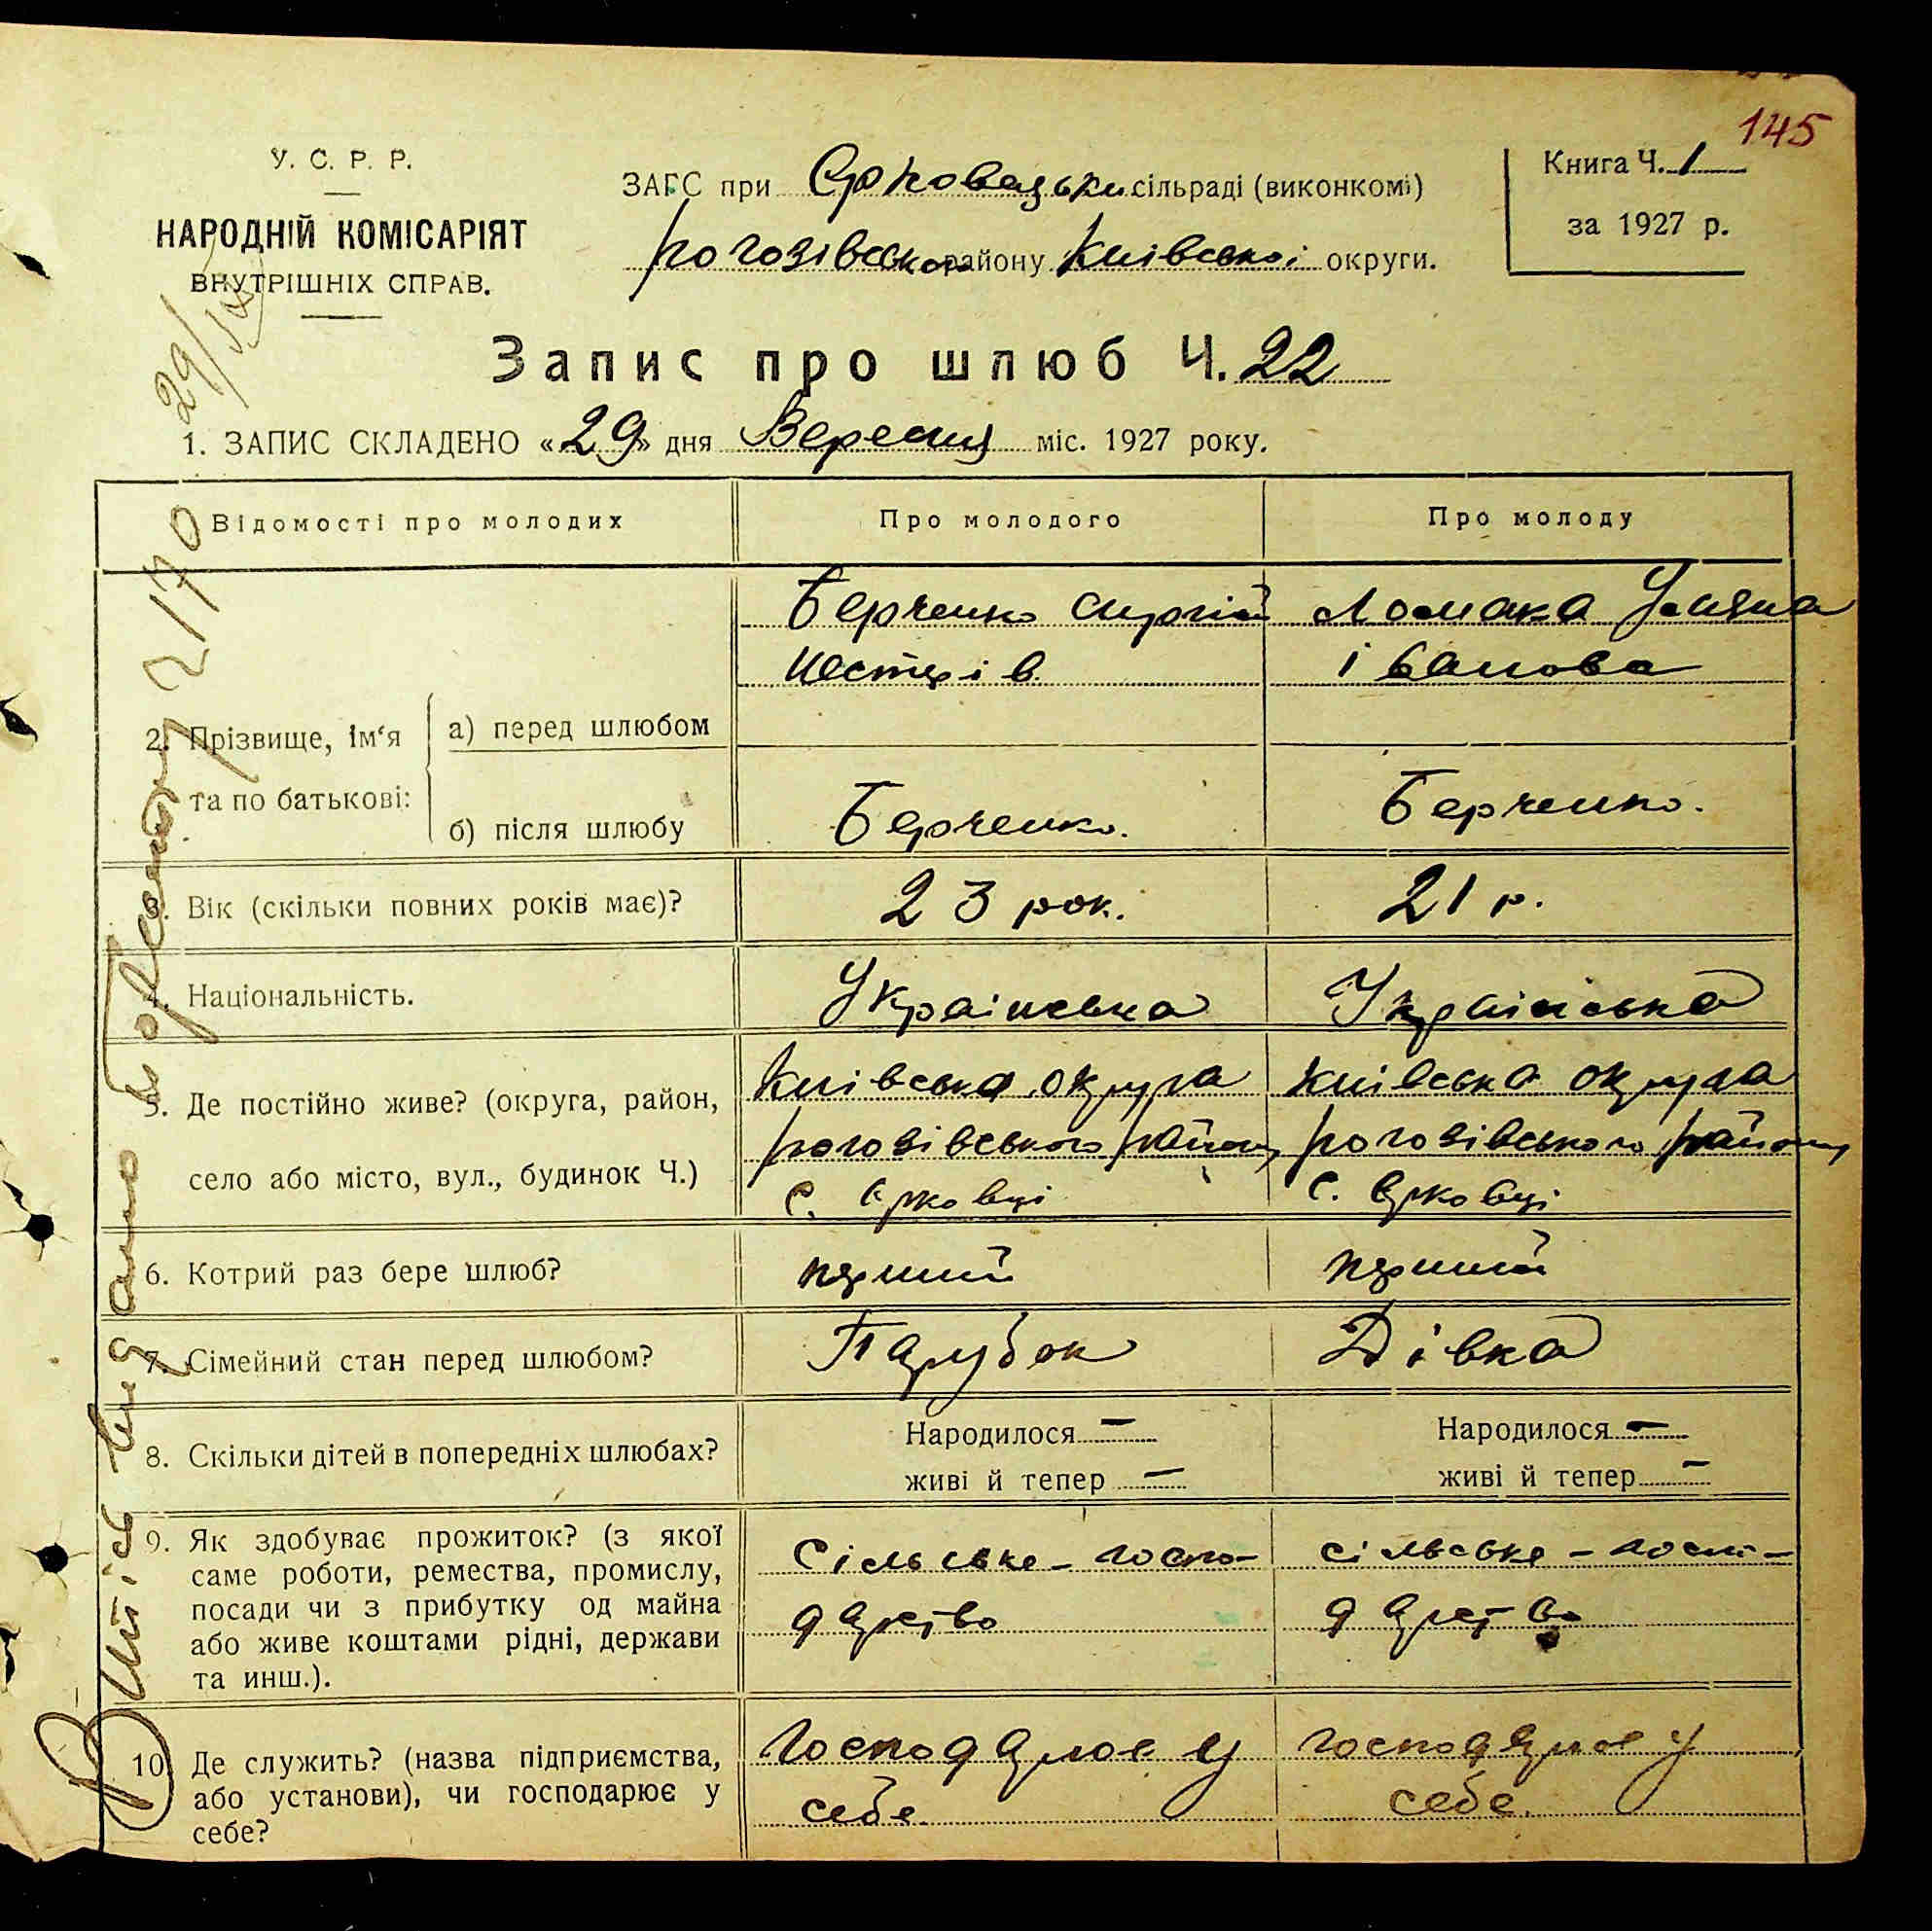 145
У. С. Р. Р.
НАРОДНІЙ КОМІСАРІЯТ
ВНУТРІШНІХ СПРАВ.
ЗАГС при Єрковецьки сільраді (виконкомі)
Рогозівського району Київської округи.
Книга Ч. 1
за 1927 р.
Запис про шлюб Ч. 22
1. ЗАПИС СКЛАДЕНО «29» дня Вересня міс. 1927 року.
Відомості про молодих
Про молодого
Про молоду
2. Прізвище, ім'я та по батькові:
а) перед шлюбом
Берченко Сергій
Нестерів
Ломака Уляна
Іванова
б) після шлюбу
Берченко.
Берченко.
3. Вік (скільки повних років має)?
23 рок.
21 р.
4. Національність.
Українська
Українська
5. Де постійно живе? (округа, район,
село або місто, вул., будинок Ч.)
Київська округа
Рогозівського району
с. Єрковці
Київська округа
Рогозівського району
с. Єрковці
6. Котрий раз бере шлюб?
перший
перший
7. Сімейний стан перед шлюбом?
Парубок
Дівка
8. Скільки дітей в попередніх шлюбах?
Народилося –
живі й тепер –
Народилося –
живі й тепер –
9. Як здобуває прожиток? (з якої
саме роботи, ремества, промислу,
посади чи з прибутку од майна
або живе коштами рідні, держави
та инш.).
Сільське-госпо-
дарство
сільське-госпо-
дарство
10. Де служить? (назва підприємства,
або установи), чи господарює у
себе?
Господарює у
себе.
господарює у
себе.
Витяг видано
2170
29/IX